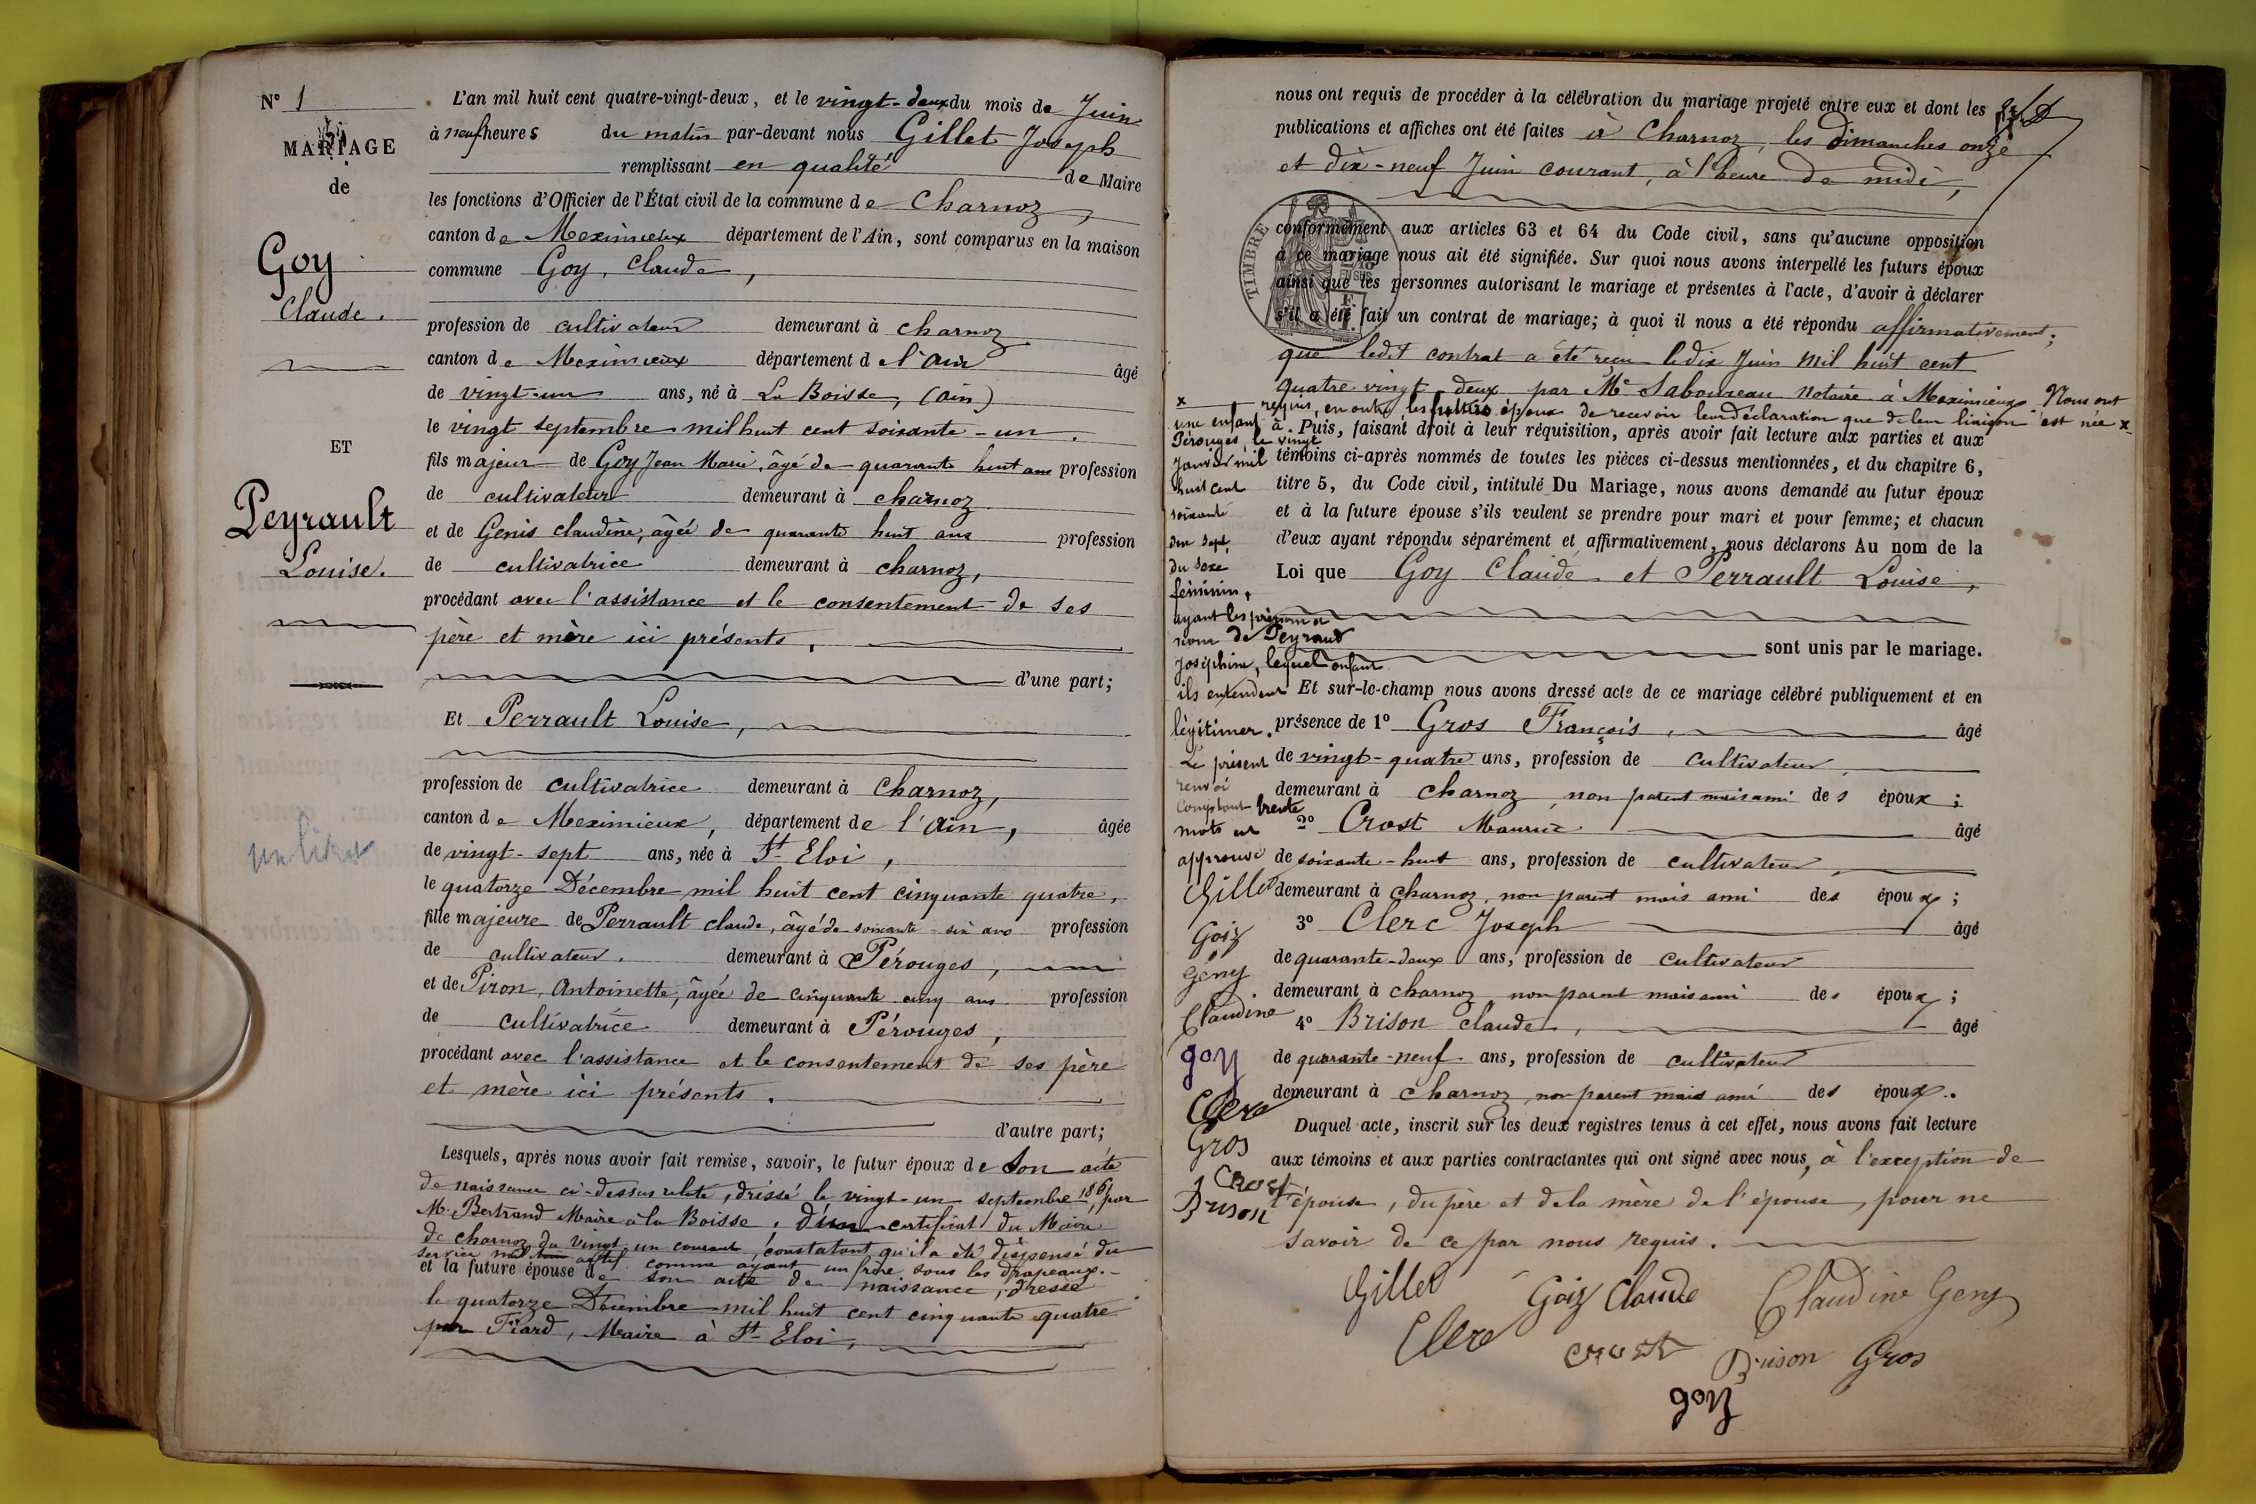 N° 1
MARIAGE
de
Goy
Claude.
ET
Peyrault
Louise.
L'an mil huit cent quatre-vingt-deux, et le vingt-deux du mois de Juin
à neuf heures du matin par-devant nous Gillet Joseph
remplissant en qualité de Maire
les fonctions d'Officier de l'État civil de la commune de Charnoz,
canton de Meximieux département de l'Ain, sont comparus en la maison
commune Goy, Claude,
profession de cultivateur demeurant à Charnoz
canton de Meximieux département de l'Ain âgé
de vingt-un ans, né à La Boisse, (Ain)
le vingt septembre mil huit cent soixante-un.
fils majeur de Goy Jean Marie, âgé de quarante huit ans profession
de cultivateur demeurant à Charnoz
et de Genis Claudine, âgée de quarante huit ans profession
de cultivatrice demeurant à Charnoz,
procédant avec l'assistance et le consentement de ses
père et mère ici présents,
d'une part;
Et Perrault Louise,
profession de cultivatrice demeurant à Charnoz,
canton de Meximieux, département de l'Ain, âgée
de vingt-sept ans, née à St Eloi,
le quatorze Décembre mil huit cent cinquante quatre,
fille majeure de Perrault Claude, âgé de soixante-six ans profession
de cultivateur. demeurant à Pérouges,
et de Piron, Antoinette, âgée de cinquante cinq ans profession
de cultivatrice demeurant à Pérouges,
procédant avec l'assistance et le consentement de ses père
et mère ici présents.
d'autre part;
Lesquels, après nous avoir fait remise, savoir, le futur époux de son acte
de naissance ci-dessus relaté, dréssé le vingt-un septembre 1861, par
M. Bertrand Maire à la Boisse, d'un certificat du Maire
de Charnoz du vingt un courant, constatant qu'il a été dispensé du
service actif comme ayant un frère sous les drapeaux.-
et la future épouse de son acte de naissance, dressé
le quatorze Décembre mil huit cent cinquante quatre
par Fiard, Maire à St Eloi,
nous ont requis de procéder à la célébration du mariage projeté entre eux et dont les
publications et affiches ont été faites à Charnoz, les Dimanches onze
et dix-neuf Juin courant, à l'heure de midi,
TIMBRE
conformément aux articles 63 et 64 du Code civil, sans qu'aucune opposition
à ce mariage nous ait été signifiée. Sur quoi nous avons interpellé les futurs époux
ainsi que les personnes autorisant le mariage et présentes à l'acte, d'avoir à déclarer
s'il a été fait un contrat de mariage; à quoi il nous a été répondu affirmativement;
que ledit contrat a été reçu le dix Juin mil huit cent
quatre-vingt-deux par Me Sabouneau notaire à Meximieux. Nous ont
requis, en outre, les futurs époux de recevoir leur déclaration que de leur liaison est née x
Puis, faisant droit à leur réquisition, après avoir fait lecture aux parties et aux
témoins ci-après nommés de toutes les pièces ci-dessus mentionnées, et du chapitre 6,
titre 5, du Code civil, intitulé Du Mariage, nous avons demandé au futur époux
et à la future épouse s'ils veulent se prendre pour mari et pour femme; et chacun
d'eux ayant répondu séparément et affirmativement, nous déclarons Au nom de la
Loi que Goy Claude et Perrault Louise,
sont unis par le mariage.
Et sur-le-champ nous avons dressé acte de ce mariage célébré publiquement et en
présence de 1° Gros François, âgé
de vingt-quatre ans, profession de cultivateur
demeurant à Charnoz non parent mais ami des époux;
2° Crost Maurice âgé
de soixante-huit ans, profession de cultivateur,
demeurant à Charnoz, non parent mais ami des époux;
3° Clerc Joseph âgé
de quarante-deux ans, profession de cultivateur
demeurant à Charnoz non parent mais ami des époux;
4° Brison Claude, âgé
de quarante-neuf ans, profession de cultivateur
demeurant à Charnoz, non parent mais ami des époux.
Duquel acte, inscrit sur les deux registres tenus à cet effet, nous avons fait lecture
aux témoins et aux parties contractantes qui ont signé avec nous, à l'exception de
l'épouse, du père et de la mère de l'épouse, pour ne
savoir de ce par nous requis.
x
une enfant à
Pérouges, le vingt
Janvier mil
huit cent
soixante
dix sept,
du sexe
féminin,
ayant les prénom et
nom de Peyraud
Joséphine, lequel enfant
ils entendent
légitimer.
Le présent
renvoi
comptant trente
mots est
approuvé
Gillet
Goiz
Gény
Claudine
goy
Clerc
Gros
Crost
Brison
Gillet Goiz Claude Claudine Geny
Clerc Crost Brison Gros
goy